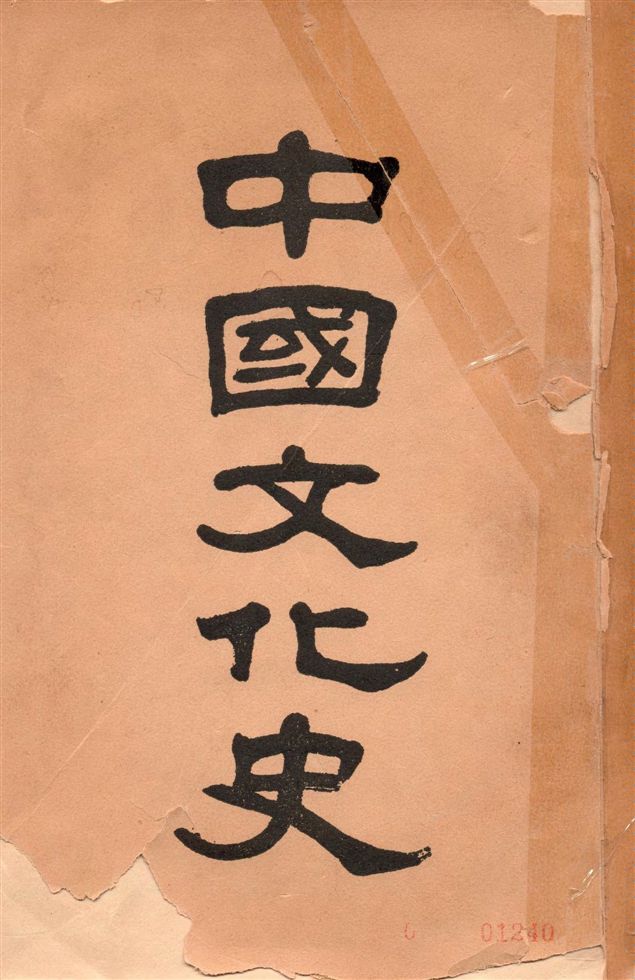 中國文化史
01240